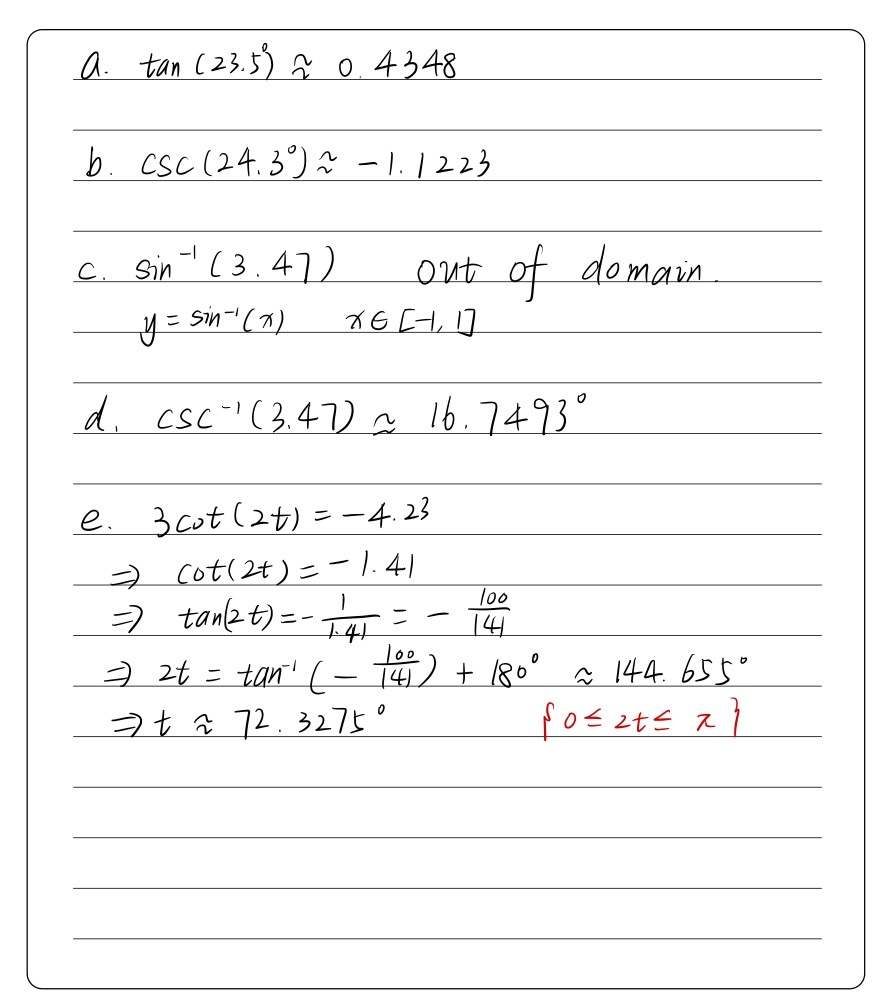 a. tan (23.5°) ≈ 0.4348
b. csc (24.3°) ≈ -1.1223
c. sin⁻¹ (3.47) out of domain.
y = sin⁻¹(x) x ∈ [-1, 1]
d. csc⁻¹(3.47) ≃ 16.7493°
e. 3cot(2t) = -4.23
⇒ cot(2t) = -1.41
⇒ tan(2t) = -1/1.41 = -100/141
⇒ 2t = tan⁻¹(-100/141) + 180° ≈ 144.655°
⇒ t ≈ 72.3275° {0 ≤ 2t ≤ π}